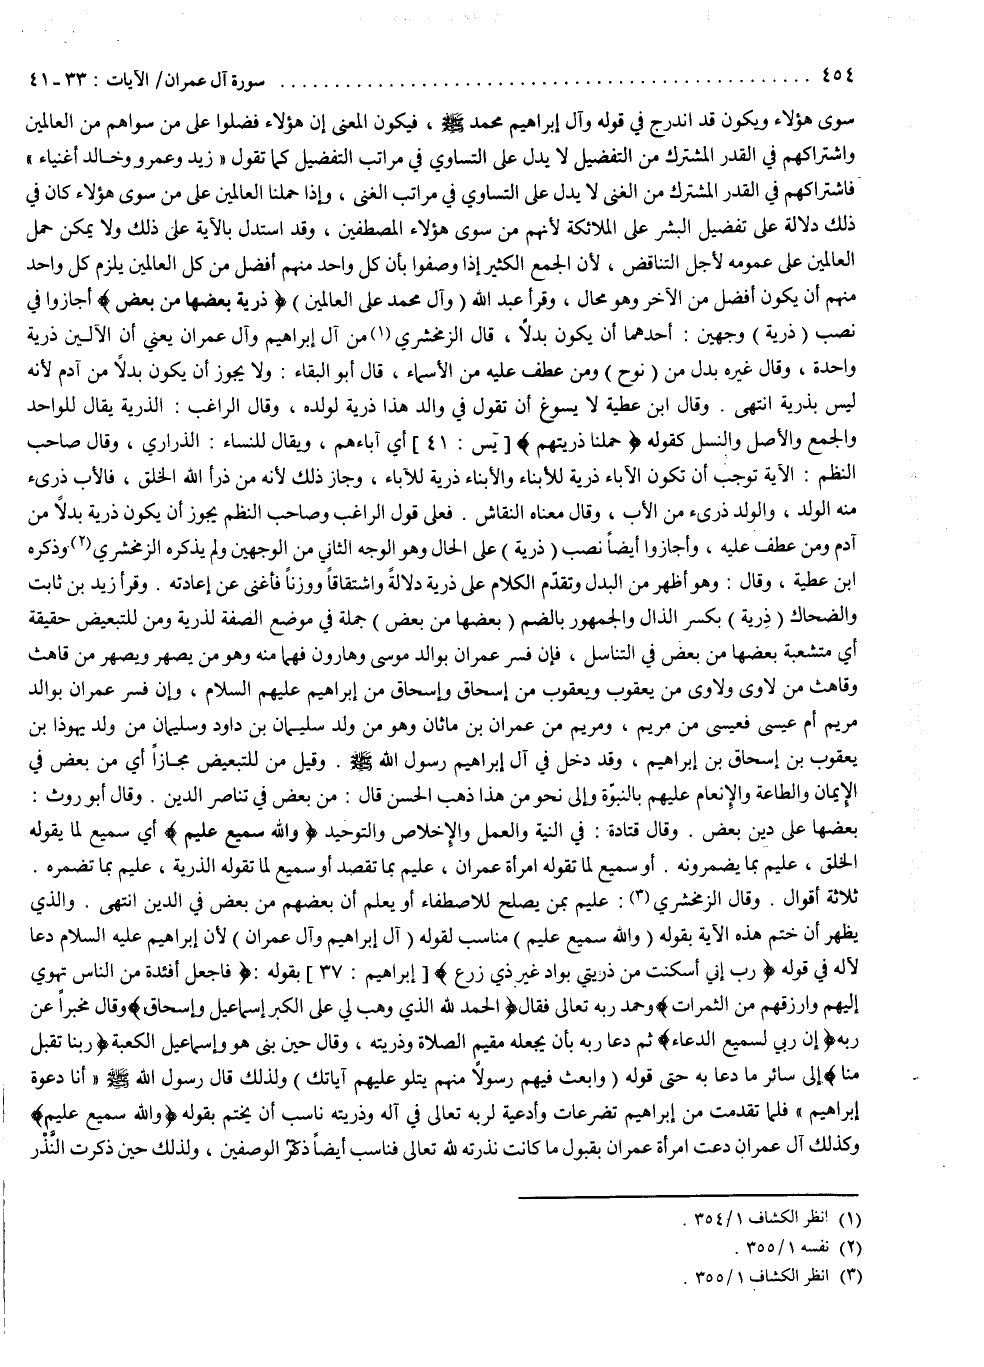 ٤٥٤ ........................................ سورة آل عمران/ الآيات : ٣٣ ـ ٤١
سوى هؤلاء ويكون قد اندرج في قوله وآل إبراهيم محمد ﷺ ، فيكون المعنى إن هؤلاء فضلوا على من سواهم من العالمين
واشتراكهم في القدر المشترك من التفضيل لا يدل على التساوي في مراتب التفضيل كما تقول « زيد وعمرو وخالد أغنياء »
فاشتراكهم في القدر المشترك من الغنى لا يدل على التساوي في مراتب الغنى ، وإذا حملنا العالمين على من سوى هؤلاء كان في
ذلك دلالة على تفضيل البشر على الملائكة لأنهم من سوى هؤلاء المصطفين ، وقد استدل بالآية على ذلك ولا يمكن حمل
العالمين على عمومه لأجل التناقض ، لأن الجمع الكثير إذا وصفوا بأن كل واحد منهم أفضل من كل العالمين يلزم كل واحد
منهم أن يكون أفضل من الآخر وهو محال ، وقرأ عبد الله ( وآل محمد على العالمين ) ﴿ ذرية بعضها من بعض ﴾ أجازوا في
نصب ( ذرية ) وجهين : أحدهما أن يكون بدلاً ، قال الزمخشري (١) من آل إبراهيم وآل عمران يعني أن الآلين ذرية
واحدة ، وقال غيره بدل من ( نوح ) ومن عطف عليه من الأسماء ، قال أبو البقاء : ولا يجوز أن يكون بدلاً من آدم لأنه
ليس بذرية انتهى . وقال ابن عطية لا يسوغ أن تقول في والد هذا ذرية لولده ، وقال الراغب : الذرية يقال للواحد
والجمع والأصل والنسل كقوله ﴿ حملنا ذريتهم ﴾ [ يٓس : ٤١ ] أي آباءهم ، ويقال للنساء : الذراري ، وقال صاحب
النظم : الآية توجب أن تكون الآباء ذرية للأبناء والأبناء ذرية للآباء ، وجاز ذلك لأنه من ذرأ الله الخلق ، فالأب ذرىء
منه الولد ، والولد ذرىء من الأب ، وقال معناه النقاش . فعلى قول الراغب وصاحب النظم يجوز أن يكون ذرية بدلاً من
آدم ومن عطف عليه ، وأجازوا أيضاً نصب ( ذرية ) على الحال وهو الوجه الثاني من الوجهين ولم يذكره الزمخشري(٢) وذكره
ابن عطية ، وقال : وهو أظهر من البدل وتقدّم الكلام على ذرية دلالةً واشتقاقاً ووزناً فأغنى عن إعادته . وقرأ زيد بن ثابت
والضحاك ( ذِرية ) بكسر الذال والجمهور بالضم ( بعضها من بعض ) جملة في موضع الصفة لذرية ومن للتبعيض حقيقة
أي متشعبة بعضها من بعض في التناسل ، فإن فسر عمران بوالد موسى وهارون فهما منه وهو من يصهر ويصهر من قاهث
وقاهث من لاوى ولاوى من يعقوب ويعقوب من إسحاق وإسحاق من إبراهيم عليهم السلام ، وإن فسر عمران بوالد
مريم أم عيسى فعيسى من مريم ، ومريم من عمران بن ماثان وهو من ولد سليمان بن داود وسليمان من ولد يهوذا بن
يعقوب بن إسحاق بن إبراهيم ، وقد دخل في آل إبراهيم رسول الله ﷺ . وقيل من للتبعيض مجازاً أي من بعض في
الإيمان والطاعة والإنعام عليهم بالنبوّة وإلى نحو من هذا ذهب الحسن قال : من بعض في تناصر الدين . وقال أبو روث :
بعضها على دين بعض . وقال قتادة : في النية والعمل والإخلاص والتوحيد ﴿ والله سميع عليم ﴾ أي سميع لما يقوله
الخلق ، عليم بما يضمرونه . أو سميع لما تقوله امرأة عمران ، عليم بما تقصد أو سميع لما تقوله الذرية ، عليم بما تضمره .
ثلاثة أقوال . وقال الزمخشري (٣) : عليم بمن يصلح للاصطفاء أو يعلم أن بعضهم من بعض في الدين انتهى . والذي
يظهر أن ختم هذه الآية بقوله ( والله سميع عليم ) مناسب لقوله ( آل إبراهيم وآل عمران ) لأن إبراهيم عليه السلام دعا
لآله في قوله ﴿ رب إني أسكنت من ذريتي بواد غير ذي زرع ﴾ [ إبراهيم : ٣٧ ] بقوله : ﴿ فاجعل أفئدة من الناس تهوي
إليهم وارزقهم من الثمرات ﴾ وحمد ربه تعالى فقال ﴿ الحمد لله الذي وهب لي على الكبر إسماعيل وإسحاق ﴾ وقال مخبراً عن
ربه ﴿ إن ربي لسميع الدعاء ﴾ ثم دعا ربه بأن يجعله مقيم الصلاة وذريته ، وقال حين بنى هو وإسماعيل الكعبة ﴿ ربنا تقبل
منا ﴾ إلى سائر ما دعا به حتى قوله ( وابعث فيهم رسولاً منهم يتلو عليهم آياتك ) ولذلك قال رسول الله ﷺ « أنا دعوة
إبراهيم » فلما تقدمت من إبراهيم تضرعات وأدعية لربه تعالى في آله وذريته ناسب أن يختم بقوله ﴿ والله سميع عليم ﴾
وكذلك آل عمران دعت امرأة عمران بقبول ما كانت نذرته لله تعالى فناسب أيضاً ذكرُ الوصفين ، ولذلك حين ذكرت النَّذْر
(١) انظر الكشاف ٣٥٤/١ .
(٢) نفسه ٣٥٥/١ .
(٣) انظر الكشاف ٣٥٥/١ .